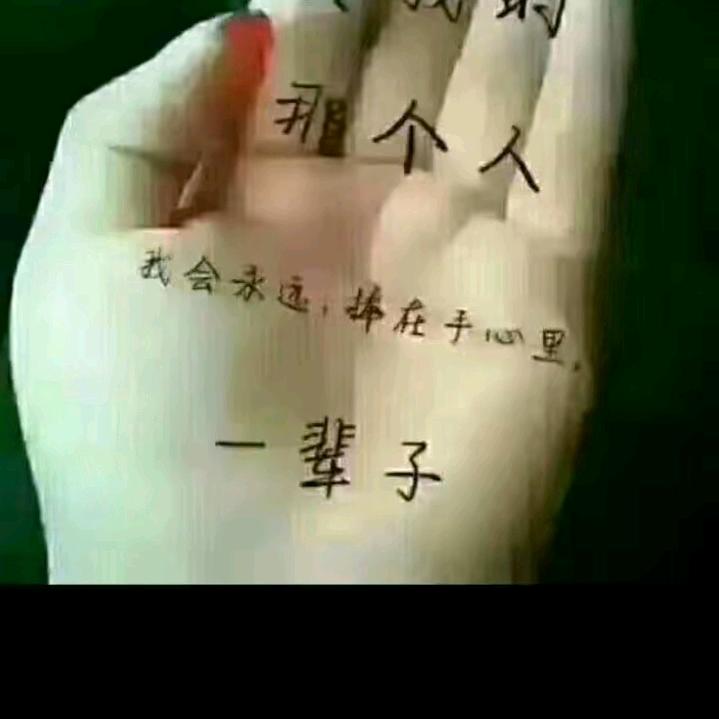 我的
那个人
我会永远，捧在手心里，
一辈子